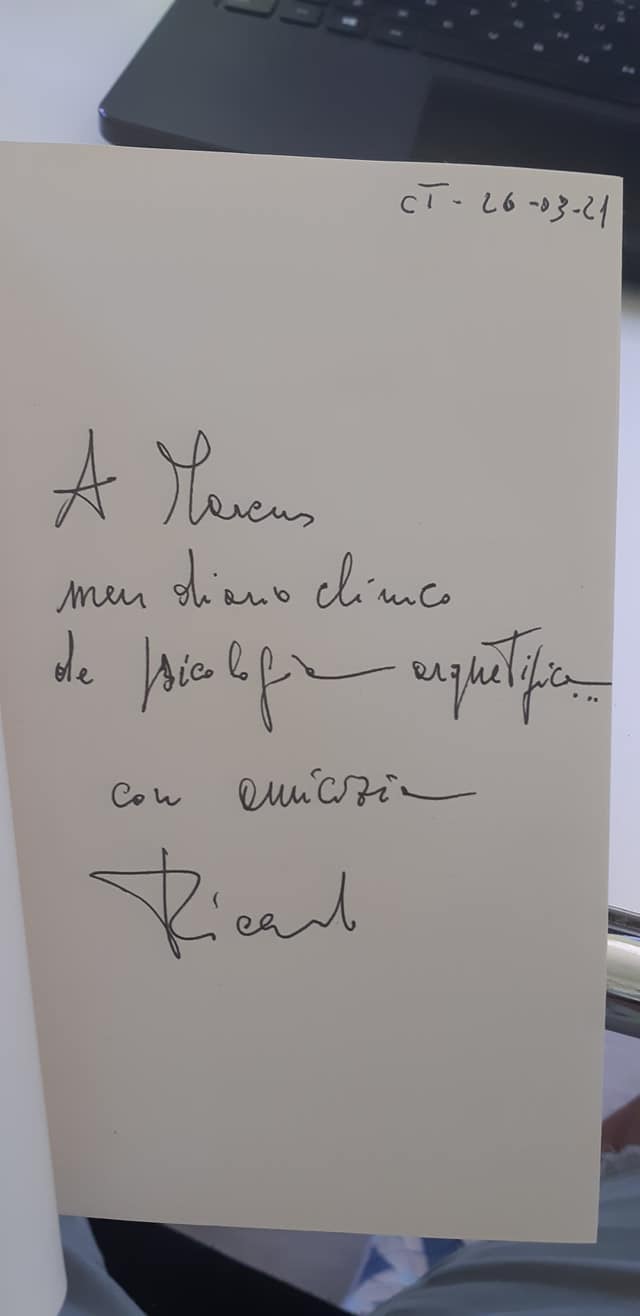 CT - 26-03-21
A Marcus
meu diario clínico
de psicologia arquetípica...
con amicizia
Ricardo